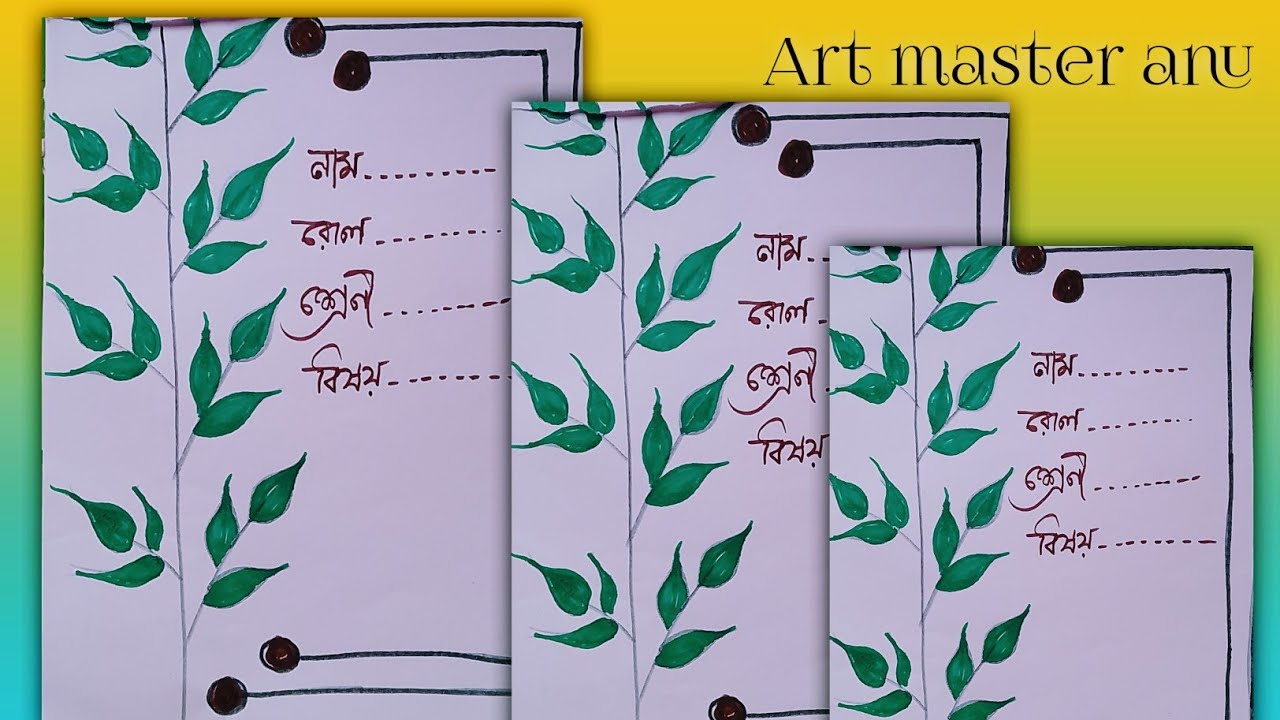 Art master anu
নাম.........
রোল.........
শ্রেণী.........
বিষয়.........
নাম..
রোল.
শ্রেণী.
বিষয়
নাম.........
রোল.........
শ্রেণী.........
বিষয়.........